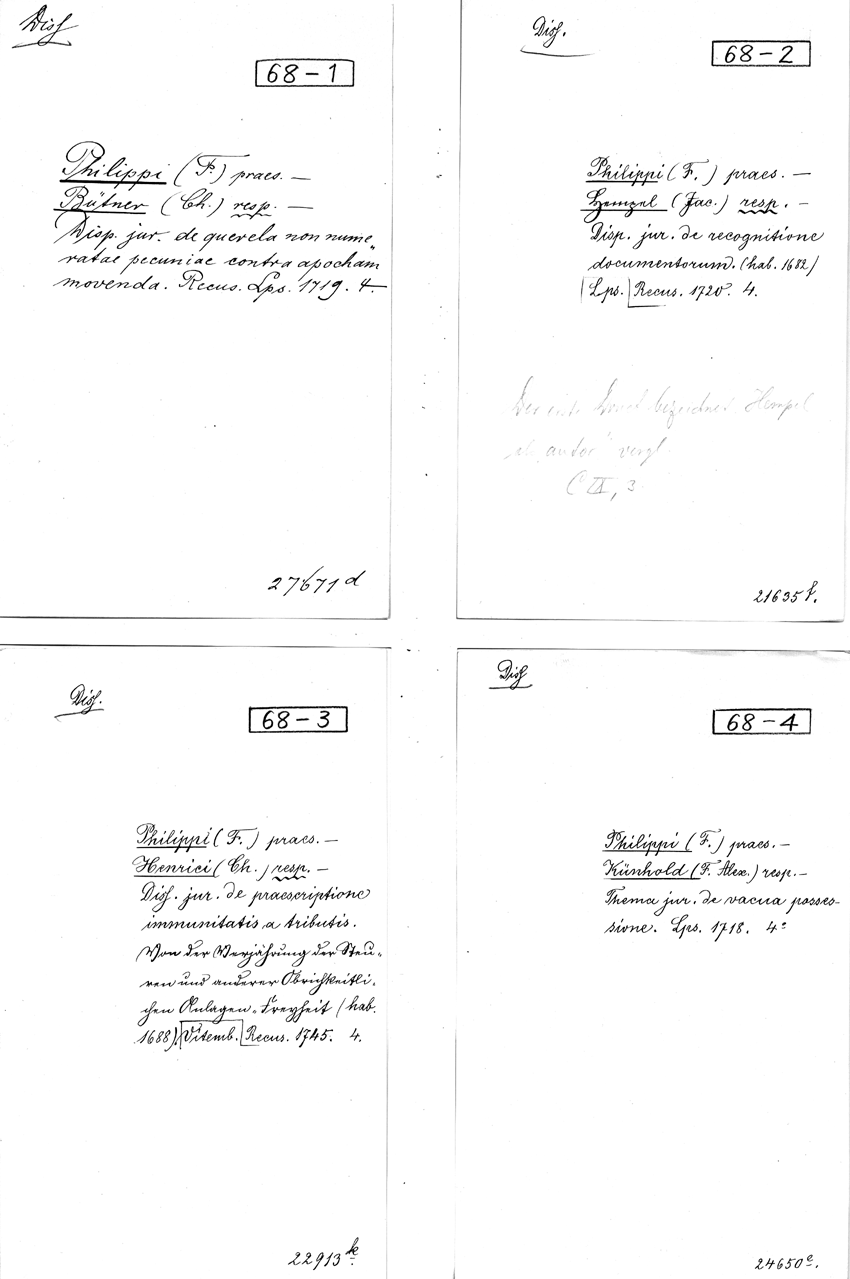 Diss
68-1
Philippi (F.) praes. —
Bütner (Ch.) resp. —
Disp. jur. de querela non nume„
ratae pecuniae contra apocham
movenda. Recus. Lps. 1719. 4.
27671 d
Diss.
68-2
Philippi (F.) praes. —
Hempel (Jac.) resp. —
Disp. jur. de recognitione
documentorum. (hab. 1682)
Lps. Recus. 1720. 4.
Druck bezeichnet Hempel
als „autor" vergl.
C IX, 3
21635 f.
Diss.
68-3
Philippi (F.) praes. —
Henrici (Ch.) resp. —
Diss. jur. de praescriptione
immunitatis a tributis.
Von der Verjährung der Steu„
ren und anderer Obrichkeitli„
chen Anlagen-Freyheit (hab.
1688). Vitemb. Recus. 1745. 4.
22913 k
Diss
68-4
Philippi (F.) praes. —
Künhold (F. Alex.) resp. —
Thema jur. de vacua posses-
sione. Lps. 1718. 4°
24650 e.